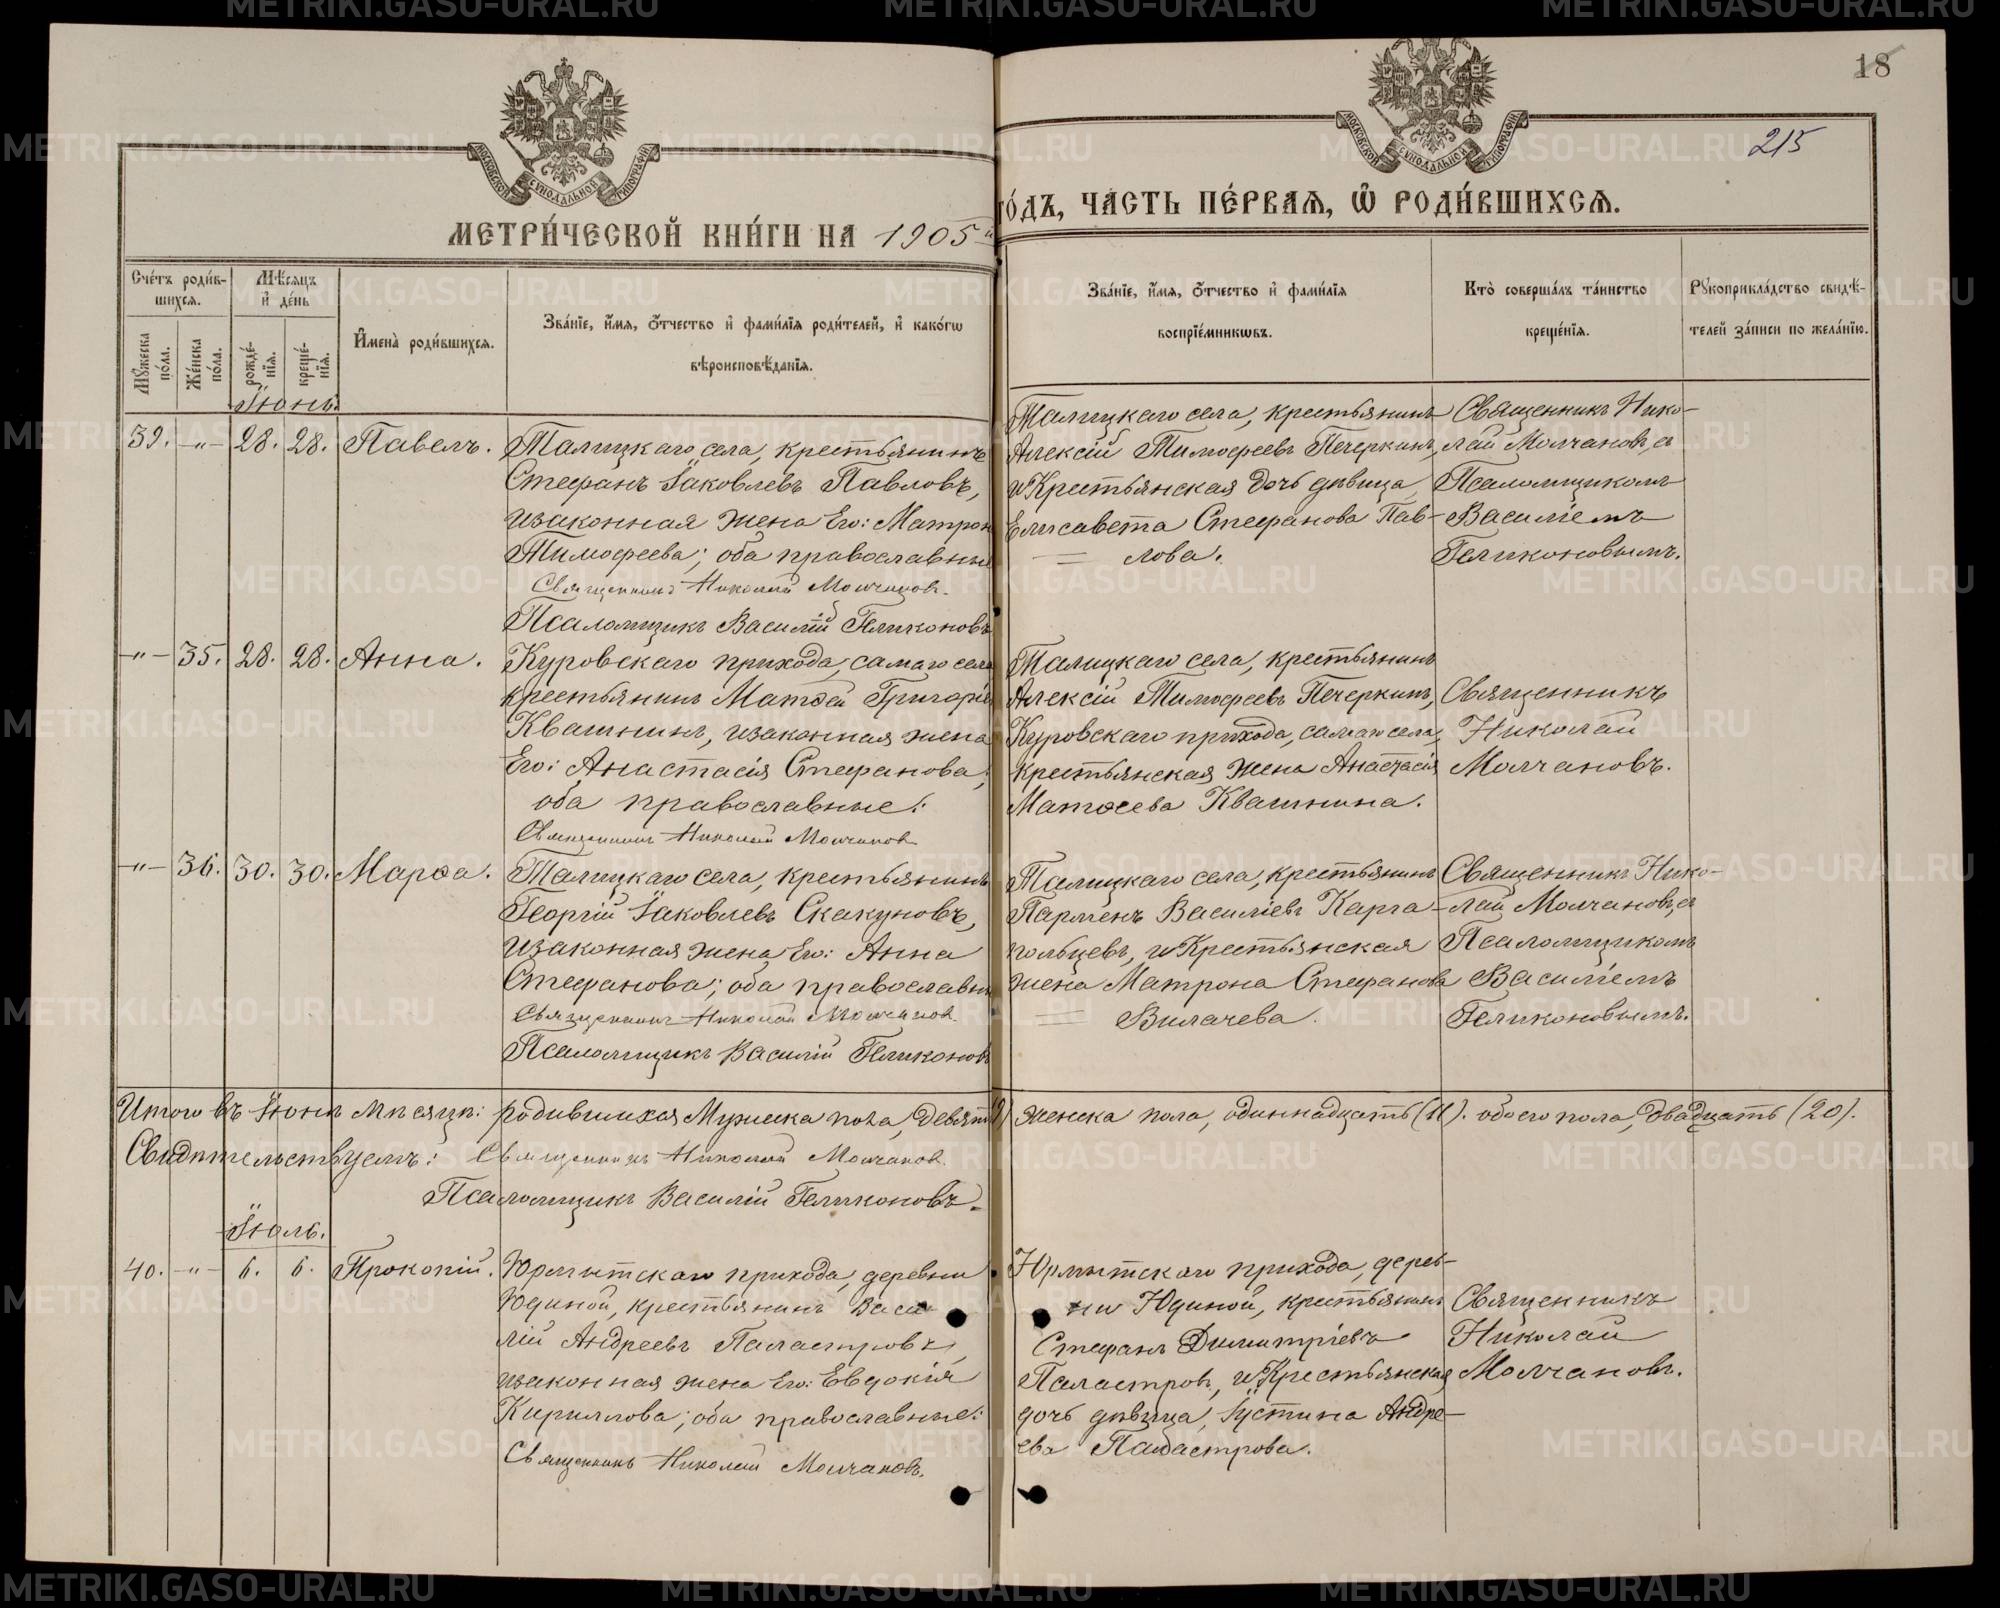 18
215
МОСКОВСКОЙ СѴНОДАЛЬНОЙ ТИПОГРАФІИ
МОСКОВСКОЙ СѴНОДАЛЬНОЙ ТИПОГРАФІИ
МЕТРИ́ЧЕСКОЙ КНИ́ГИ НА 1905й
го́дъ, ЧА́СТЬ ПЕ́РВАЯ, Ѡ҆ РОДИ́ВШИХСѦ.
Сче́тъ роди́в-
шихся.
Мѣ́сяцъ
и҆ де́нь
Мꙋ́жеска
по́ла.
Же́нска
по́ла.
рожде́-
нїя.
креще́-
нїя.
И҆мена̀ роди́вшихся.
Зва́нїе, и҆́мя, ѻ҆́тчество и҆ фами́лїя роди́телей, и҆ како́гѡ
вѣроисповѣ́данїя.
Зва́нїе, и҆́мя, ѻ҆́тчество и҆ фами́лїя
воспрїе́мникѡвъ.
Кто̀ соверша́лъ та́инство
креще́нїя.
Рꙋкоприкла́дство свидѣ́-
телей за́писи по жела́нїю.
Іюнь.
39. -„- 28. 28. Павелъ.
Талицкаго села, крестьянинъ
Стефанъ Іаковлевъ Павловъ,
и законная жена Его: Матрон
Тимофеева; оба православны
Священникъ Николай Молчановъ.
Псаломщикъ Василій Геликоновъ
Талицкаго села, крестьянинъ
Алексій Тимофеевъ Печеркинъ,
и Крестьянская дочь дѣвица
Елисавета Стефанова Пав-
лова.
Священникъ Нико-
лай Молчановъ, съ
Псаломщикомъ
Василіемъ
Геликоновымъ.
-„- 35. 28. 28. Анна.
Куровскаго прихода, самаго села
крестьянинъ Матѳей Григоріе
Квашнинъ, и законная жена
Его: Анастасія Стефанова;
оба православные.
Священникъ Николай Молчановъ
Талицкаго села, крестьянинъ
Алексій Тимофеевъ Печеркинъ,
Куровскаго прихода, самаго села,
крестьянская жена Анастасія
Матѳеева Квашнина.
Священникъ
Николай
Молчановъ.
-„- 36. 30. 30. Марѳа.
Талицкаго села, крестьянинъ
Георгій Іаковлевъ Скакуновъ,
и законная жена Его: Анна
Стефанова; оба православны
Священникъ Николай Молчановъ
Псаломщикъ Василій Геликоновъ
Талицкаго села, крестьянинъ
Парменъ Василіевъ Карга-
польцевъ, и Крестьянская
жена Матрона Стефанова
Вилачева.
Священникъ Нико-
лай Молчановъ, съ
Псаломщикомъ
Василіемъ
Геликоновымъ.
Итого въ Іюнѣ мѣсяцѣ: родившихся Мужеска пола, девять (9) женска пола, одиннадцать (11). обоего пола, двадцать (20).
Свидѣтельствуемъ: Священникъ Николай Молчановъ
Псаломщикъ Василій Геликоновъ.
Іюль.
40. -„- 6. 6. Прокопій.
Юрмытскаго прихода, деревни
Юдиной, крестьянинъ Васи
лій Андреевъ Паластровъ,
и законная жена Его: Евдокія
Кириллова; оба православные:
Священникъ Николай Молчановъ.
Юрмытскаго прихода, дерев-
ни Юдиной, крестьянинъ
Стефанъ Димитріевъ
Паластровъ, и Крестьянская
дочь дѣвица, Іустина Андре-
ева Паластрова.
Священникъ
Николай
Молчановъ.
METRIKI.GASO-URAL.RU